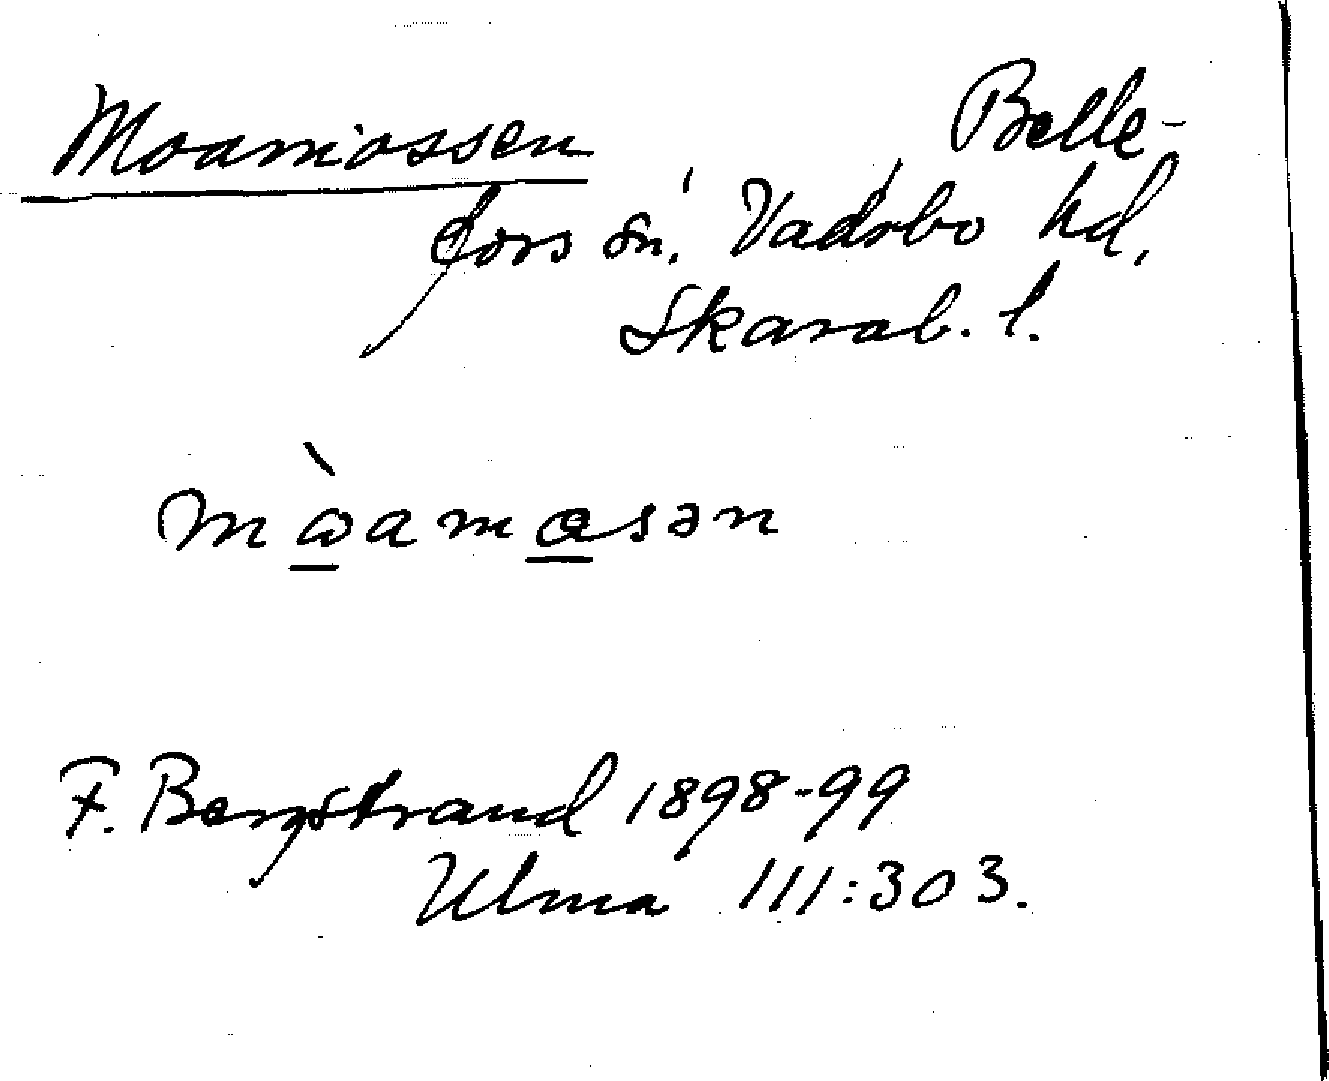 Moamossen Belle-
fors sn. Vadsbo hd.
Skarab. l.
mòamosən
F. Bergstrand 1898-99
Ulma 111:303.